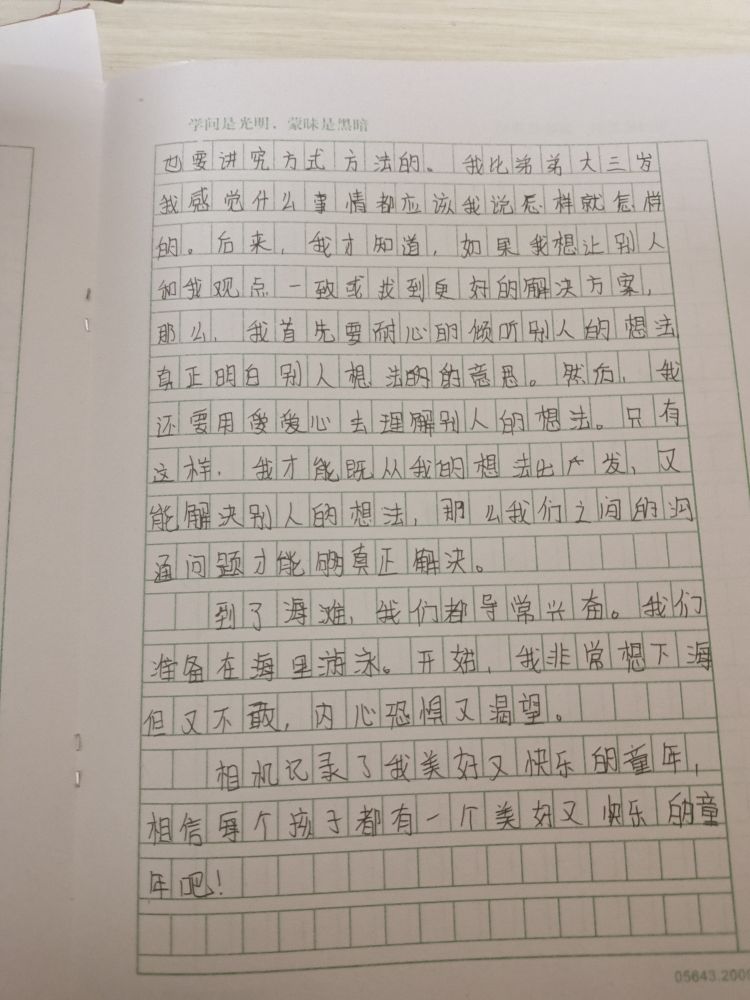 学问是光明，蒙昧是黑暗
也要讲究方式方法的。我比弟弟大三岁
我感觉什么事情都应该我说怎样就怎样
的。后来，我才知道，如果我想让别人
和我观点一致或找到更好的解决方案，
那么，我首先要耐心的倾听别人的想法
真正明白别人想法的的意思。然后，我
还要用爱爱心去理解别人的想法。只有
这样，我才能既从我的想法出产发，又
能解决别人的想法，那么我们之间的沟
通问题才能够真正解决。
到了海滩，我们都导常兴奋。我们
准备在海里游泳。开始，我非常想下海
但又不敢，内心恐惧又渴望。
相机记录了我美好又快乐的童年，
相信每个孩子都有一个美好又快乐的童
年吧！
05643.2009